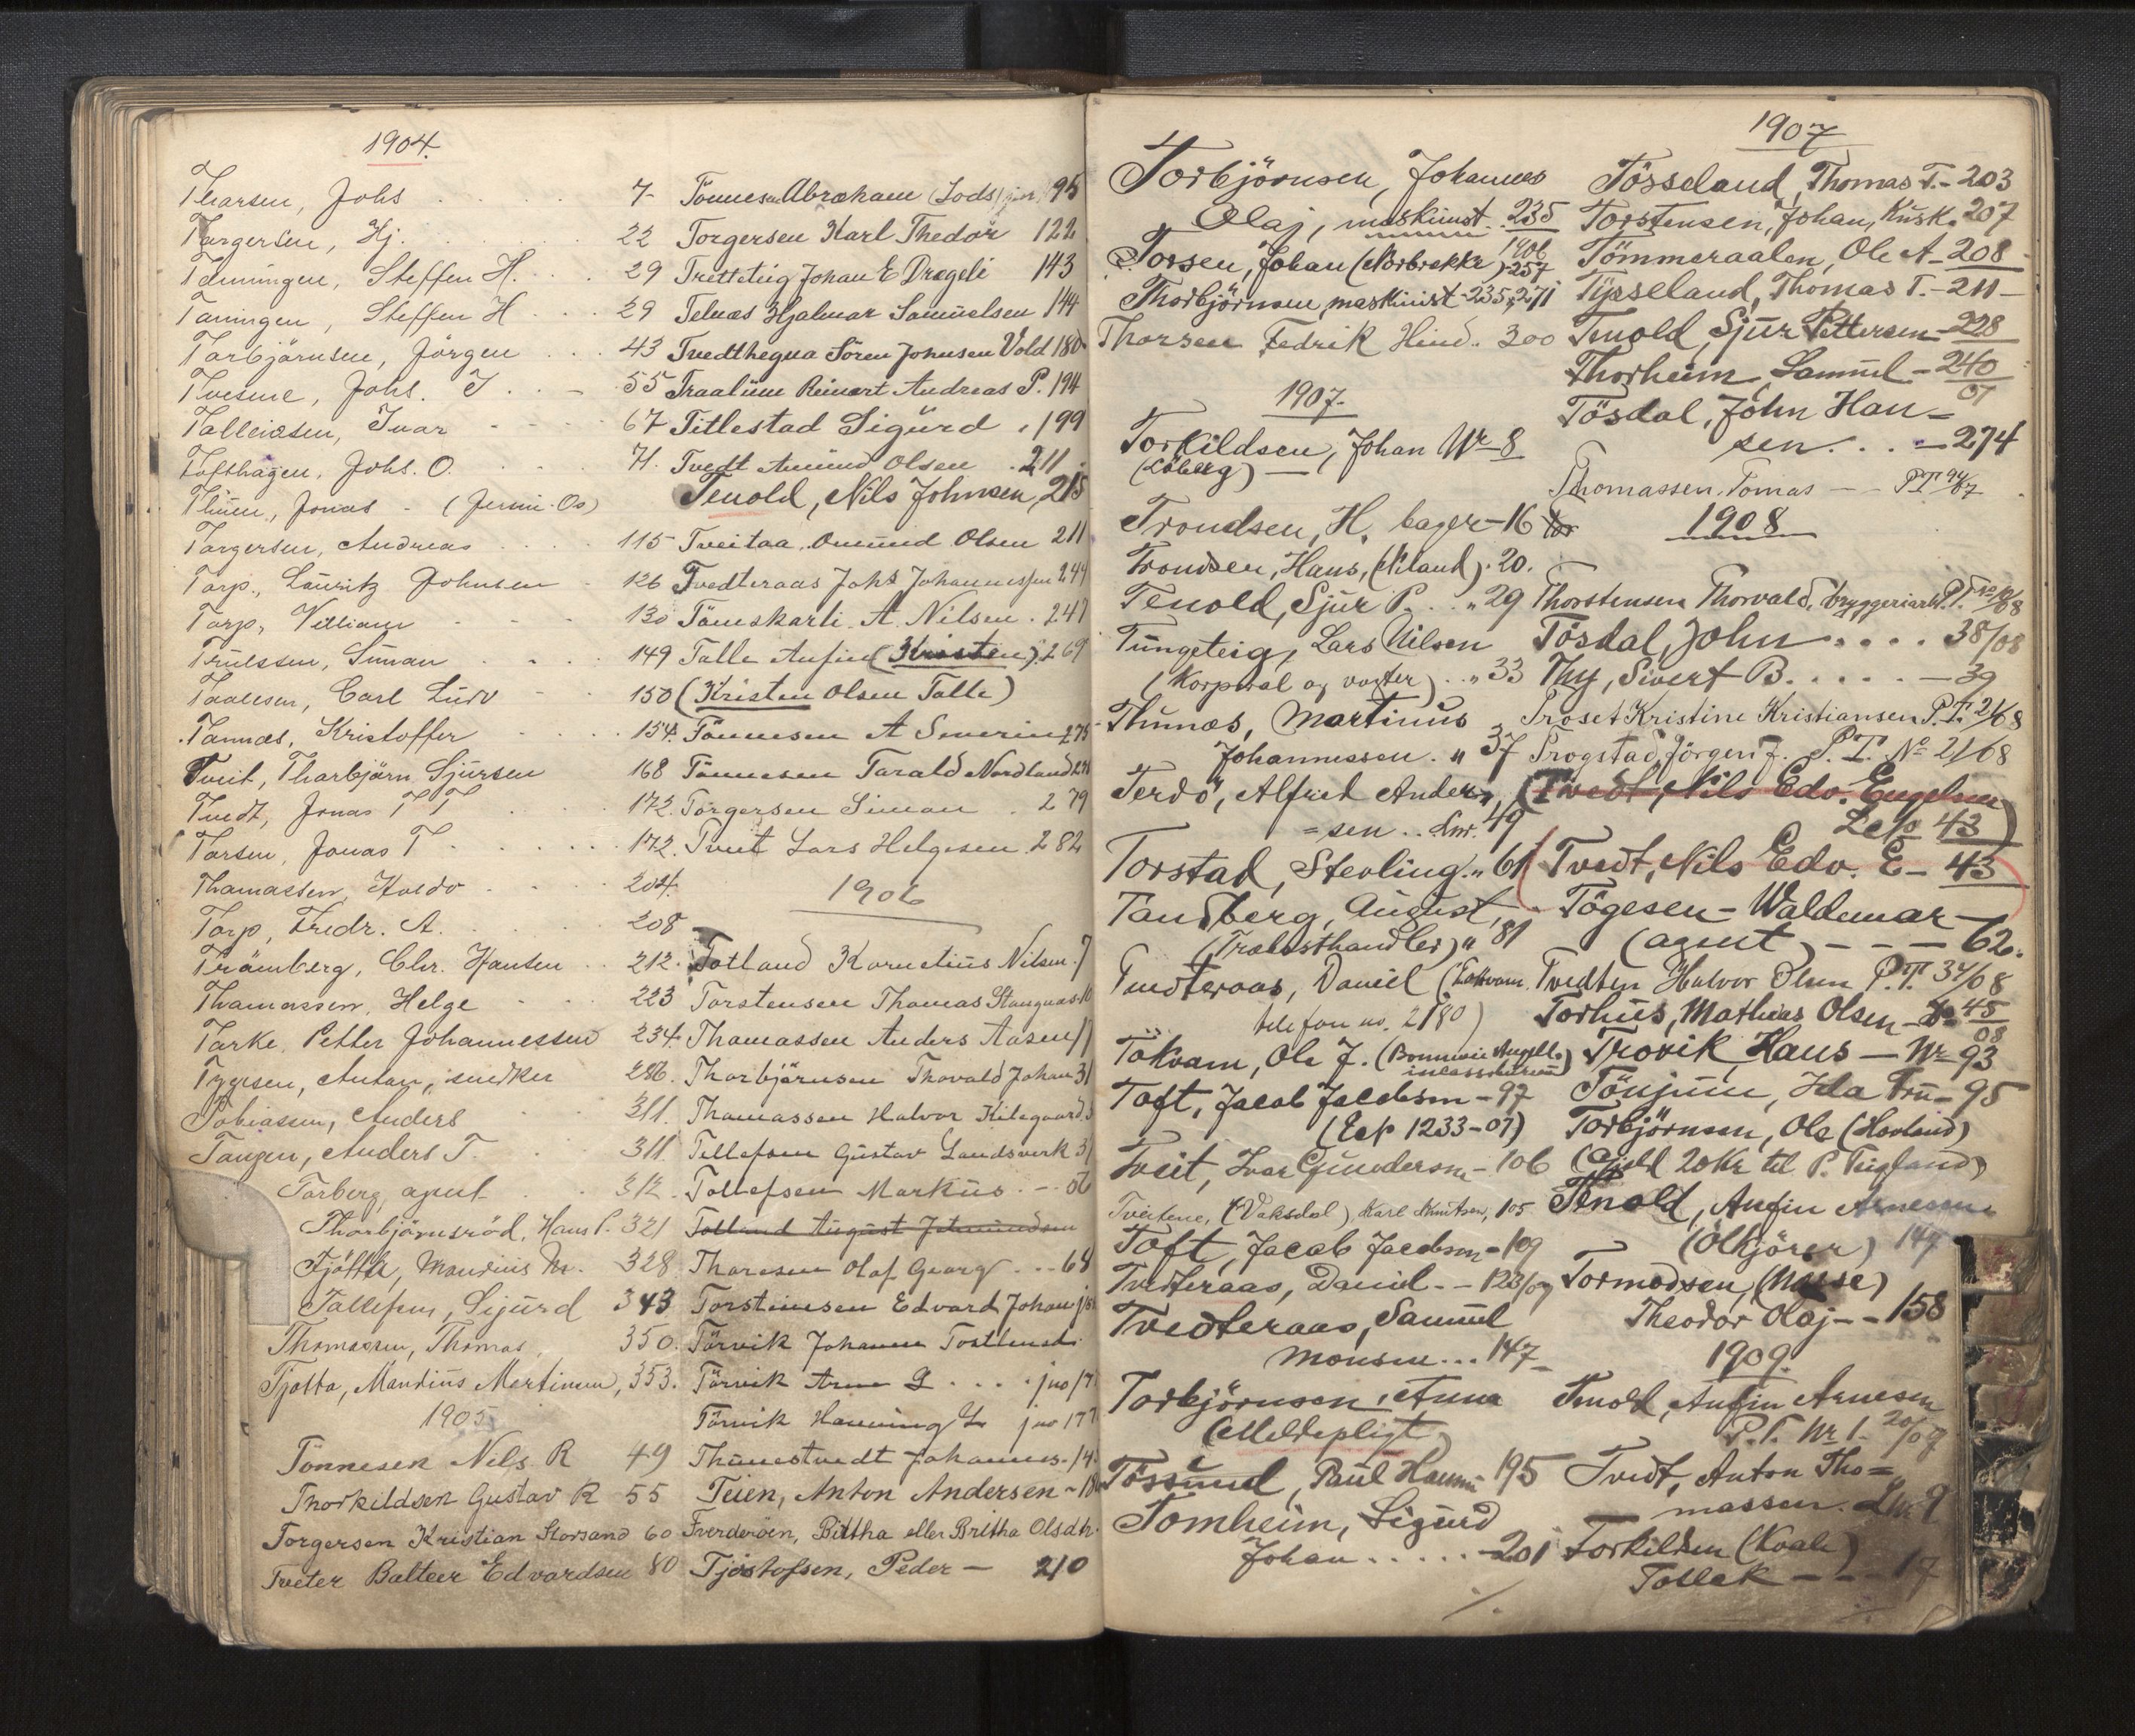 1904.
Thorsen, Johs 7
Torgersen, Hj. 22
Tenningen, Steffen H. 29
Taningen, Steffen H 29
Torbjörnsen, Jörgen 43
Tvesme, Johs. T 55
Talleivsen, Ivar 67
Tofthagen, Johs. O. 71.
Thuen, Jonas - (Jernv. Os)
Torgersen, Andreas 115
Torp., Lauritz Johnsen 126
Torp, William 130
Truelssen, Simon 149
Paulesen, Carl Ludv 150
Tonnæs, Kristoffer 154.
Tveit, Thorbjörn Sjursen 168
Tvedt, Jonas T T 172.
Torsen, Jonas T 172.
Thomassen, Haldo 204.
Torp, Fredr. A. 208
Trömborg, Chr. Hansen 212.
Thomassen, Helge 223
Torke, Petter Johannessen 234.
Tygesen, Anton, snedker 286.
Tobiassen, Anders 311.
Tangen, Anders T. 311
Torberg, agent 312.
Thorbjörnsröd, Hans P. 321
Tjötta, Mandius M. 328
Tallefsen, Sigurd 343
Thomassen, Thomas, 350.
Tjotta, Mandius Martinsen, 353.
1905
Tönnesen Nils R 49
Thorkildsen Gustav R 55
Torgersen Kristian Storsand 60
Tveter Balteer Edvardsen 80
Tönnesen Abraham (Lods) 95
Torgersen Karl Thedor 122
Trettetig Johan E Dregeli 143
Telnæs Hjalmar Samuelsen 144
Tvedthegna Sören Johnsen Vold 180
Traalum Reinert Andreas P. 194
Titlestad Sigurd . 199
Tvedt Amund Olsen . 211.
Tenold, Nils Johnsen, 215
Tveitaa, Omund Olsen 211
Tvedteraas Johs Johannessen 244
Tömskarli A. Nilsen . 247
Talle Anfin (Kristen) 269
(Kristen Olsen Talle)
Tönnesen A Severin 275
Tönnesen Tarald Nordland
Torgersen Simon . 279
Tveit Lars Helgesen 282
1906
Totland Kornelius Nilsen 7
Torstensen Thomas Stangnæs 10
Thomassen Anders Aasen 11
Thorbjörnsen Thorvald Johan 31
Thomassen Halvor Kilegaard
Tellefsen Gustav Landsverk
Tollefsen Markus . - 56
Tolland August Johmundsen
Thoresen Olaf Georg . . - 68
Torsteinsen Edvard Johan
Törvik Johannes
Törvik Arne L . . . . jno 17
Törvik Hanning L jno 17
Thunestvedt Johannes. 14
Teien, Anton Andersen - 18
Tverderöen, Bittha eller Britha Olsdtr.
Tjöstofsen, Peder — 210
Torbjörnsen, Johannes
Olaj, maskinist. 235
1906
Torsen, Johan (Nörbrekke) - 257
Thorbjörnsen, maskinist - 235, 271
Thorsen Fedrik Hind. 300
1907.
Torkildsen, Johan Nr - 8
(Löberg) —
Trondsen, H. bager - 16
Trondsen, Hans, (Niland). 20.
Tenold, Sjur P. . . " 29
Tungeteig, Lars Nilsen
(Korporal og vogter) . . " 33
Thunæs, Martinus
Johannessen. " 37
Terdö, Alfred Anders
= sen . . Lnr. 49
Torstad, Sterling. " 61
Tandberg, August,
(Trælasthandler) " 81
Tvedteraas, Daniel
telefon no. 2180)
Tökvam, Ole J.
Toft, Jacob Jacobsen - 97
(Exp 1233 - 07)
Tveit, Ivar Gunderson - 106
Tveitene, (Vaksdal), Karl Knutsen, 105
Toft, Jacob Jacobsen - 109
Tvedteraas, Daniel - - 123/07
Tvedteraas, Samuel
Monsen . . . 147
Torbjörnsen, Anna
(Meldepligt)
Tössund, Paul Hanssen - 195
Tomheim, Sigurd
Johan . . . . . - 201
1907
Tösseland, Thomas T. - 203
Torstensen, Johan, Kusk. 207
Tömmeraalen, Ole A - 208
Tysseland, Thomas T. - 211 -
Tenold, Sjur Pettersen - 228
Thorheim Samuel - 240
07
Tösdal, John Han -
sen . . . - 274
Thomassen. Tomas — P.T. 94/07
1908
Thorstensen Thorvald, bryggeriarb. P.T.
Tösdal, John . . . . 38/08
Thy, Sivert B. . . . . — 39
Troset Kristine Kristiansen P.T. 21/08
Trogstad, Jörgen J. P.T. No 21/08
(Tvedt, Nils Edv. Engelsen
43)
Tvedt, Nils Edv. E - 43
Tögesen - Waldemar
(agent) - - - 62.
Tvedten Halvor Olsen P.T. 34/08
Torhus, Mathias Olsen - 45
08
Trovik, Hans — Nr 93
Tönjum, Ida Fru - 95
Torbjörnsen, Ole (Hovland)
(Gjeld 20 Kr til P. Tugland)
Tenold, Anfin Arnesen
(Ölkjörer) 149
Tormodsen, (Masse)
Theodor Olaj - - 158
1909.
Tenold, Anfin Arnesen
P.T. Nr 1. 20/09
Tvedt, Anton Tho =
massen. Lnr 9
Torkildsen (Koale)
Tollak - - - 17